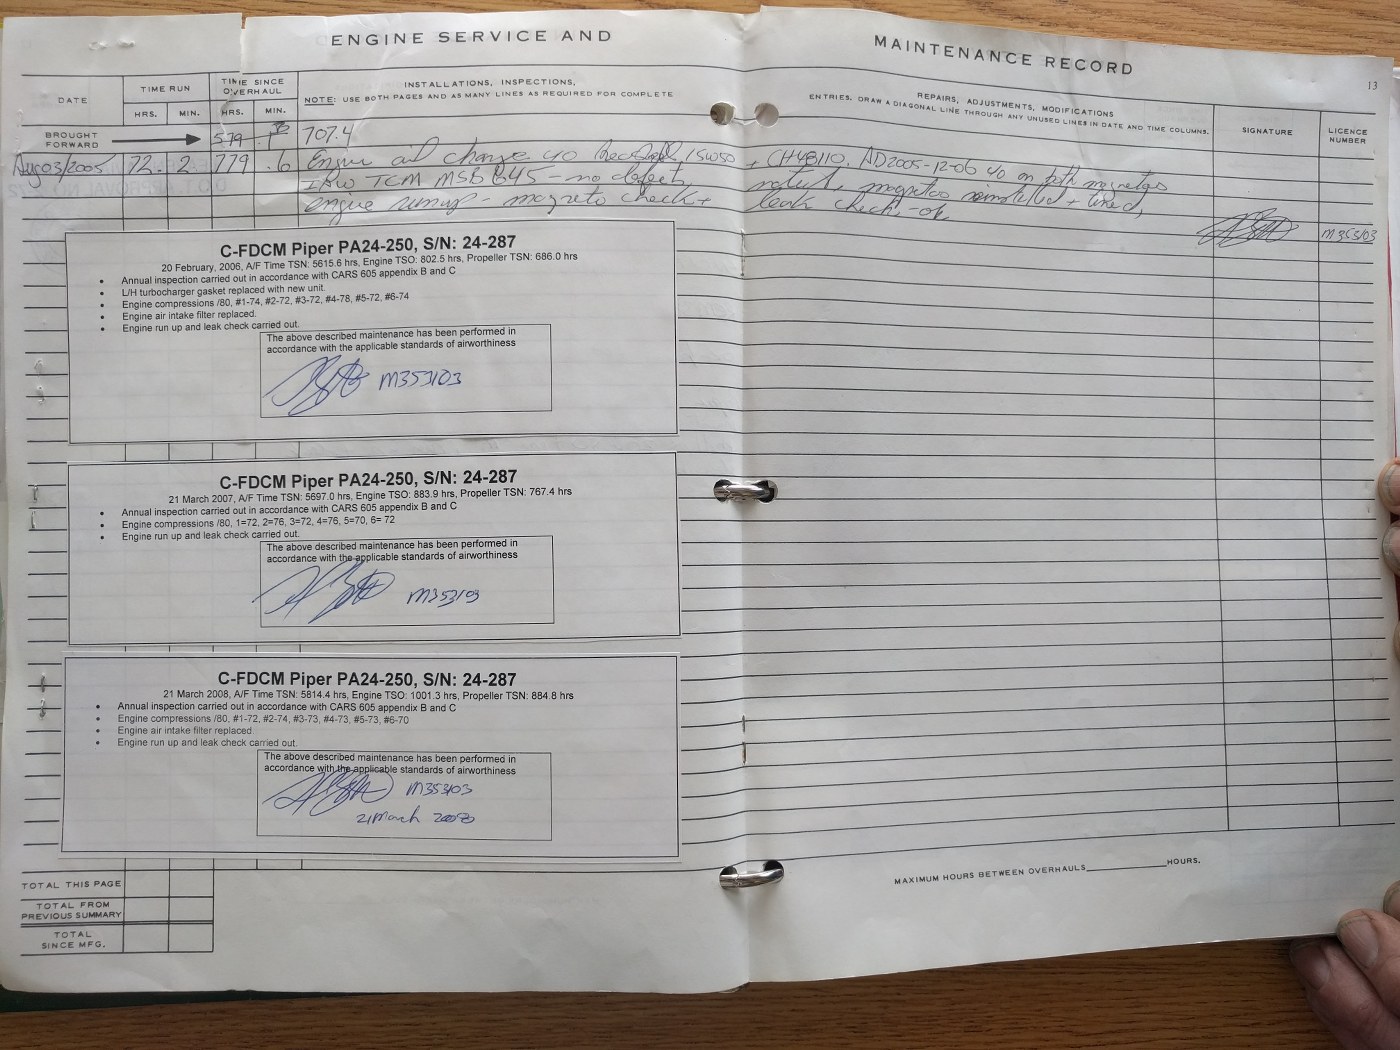 ENGINE SERVICE AND MAINTENANCE RECORD
13
DATE
TIME RUN
HRS. MIN.
TIME SINCE OVERHAUL
HRS. MIN.
INSTALLATIONS, INSPECTIONS,
NOTE: USE BOTH PAGES AND AS MANY LINES AS REQUIRED FOR COMPLETE
REPAIRS, ADJUSTMENTS, MODIFICATIONS
ENTRIES. DRAW A DIAGONAL LINE THROUGH ANY UNUSED LINES IN DATE AND TIME COLUMNS.
SIGNATURE
LICENCE NUMBER
BROUGHT FORWARD
579
707.4
Aug 03/2005 72. 2 779 .6 Engine oil change c/o 15W50 + CH48110. AD2005-12-06 c/o on both magnetos
IAW TCM MSB 645 - no defects noted, magnetos + timed,
engine runup - magneto check + leak check - ok
M353103
C-FDCM Piper PA24-250, S/N: 24-287
20 February, 2006, A/F Time TSN: 5615.6 hrs, Engine TSO: 802.5 hrs, Propeller TSN: 686.0 hrs
• Annual inspection carried out in accordance with CARS 605 appendix B and C
• L/H turbocharger gasket replaced with new unit.
• Engine compressions /80, #1-74, #2-72, #3-72, #4-78, #5-72, #6-74
• Engine air intake filter replaced.
• Engine run up and leak check carried out.
The above described maintenance has been performed in
accordance with the applicable standards of airworthiness
M353103
C-FDCM Piper PA24-250, S/N: 24-287
21 March 2007, A/F Time TSN: 5697.0 hrs, Engine TSO: 883.9 hrs, Propeller TSN: 767.4 hrs
• Annual inspection carried out in accordance with CARS 605 appendix B and C
• Engine compressions /80, 1=72, 2=76, 3=72, 4=76, 5=70, 6= 72
• Engine run up and leak check carried out.
The above described maintenance has been performed in
accordance with the applicable standards of airworthiness
M353103
C-FDCM Piper PA24-250, S/N: 24-287
21 March 2008, A/F Time TSN: 5814.4 hrs, Engine TSO: 1001.3 hrs, Propeller TSN: 884.8 hrs
• Annual inspection carried out in accordance with CARS 605 appendix B and C
• Engine compressions /80, #1-72, #2-74, #3-73, #4-73, #5-73, #6-70
• Engine air intake filter replaced.
• Engine run up and leak check carried out.
The above described maintenance has been performed in
accordance with the applicable standards of airworthiness
M353103
21 March 2008
TOTAL THIS PAGE
TOTAL FROM PREVIOUS SUMMARY
TOTAL SINCE MFG.
MAXIMUM HOURS BETWEEN OVERHAULS____________HOURS.